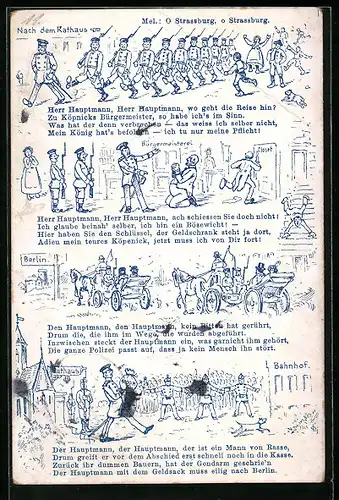 Mel.: O Strassburg, o Strassburg.
Nach dem Rathaus
Herr Hauptmann, Herr Hauptmann, wo geht die Reise hin?
Zu Köpnicks Bürgermeister, so habe ich's im Sinn.
Was hat der denn verbrochen — das weiss ich selber nicht,
Mein König hat's befohlen — ich tu nur meine Pflicht!
Bürgermeisterei
Closet
Herr Hauptmann, Herr Hauptmann, ach schiessen Sie doch nicht!
Ich glaube beinah' selber, ich bin ein Bösewicht! —
Hier haben Sie den Schlüssel, der Geldschrank steht ja dort,
Adieu mein teures Köpenick, jetzt muss ich von Dir fort!
Berlin.
Den Hauptmann, den Hauptmann, kein Bitten hat gerührt,
Drum die, die ihm im Wege, die wurden abgeführt.
Inzwischen steckt der Hauptmann ein, was garnicht ihm gehört,
Die ganze Polizei passt auf, dass ja kein Mensch ihn stört.
Rathaus
Bahnhof.
Der Hauptmann, der Hauptmann, der ist ein Mann von Rasse,
Drum greift er vor dem Abschied erst schnell noch in die Kasse.
Zurück ihr dummen Bauern, hat der Gendarm geschrie'n
Der Hauptmann mit dem Geldsack muss eilig nach Berlin.